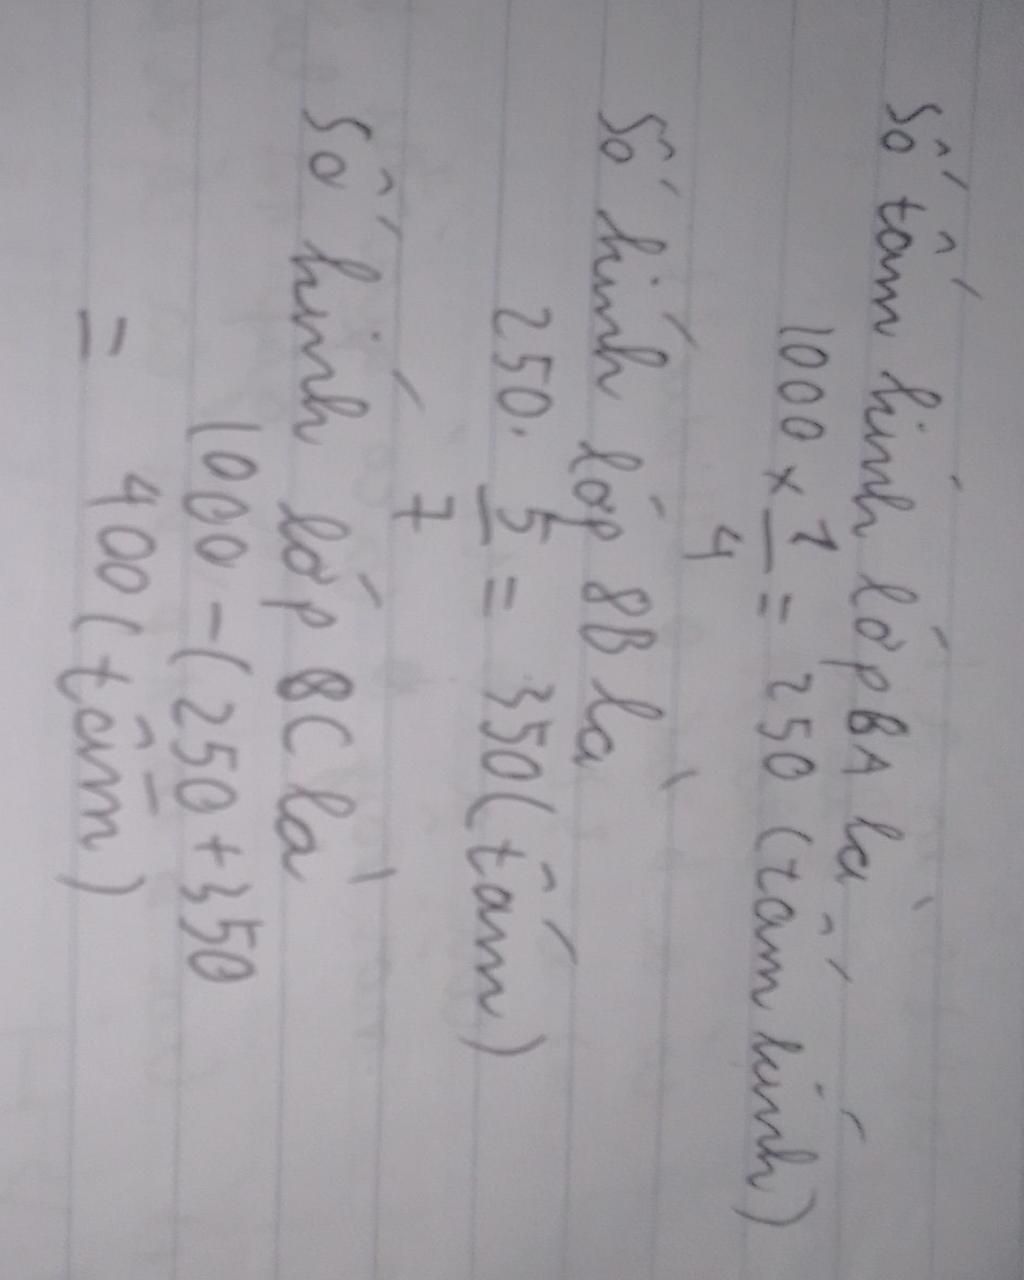 Số tấm hính lớp 8A là
1000 × 1/4 = 250 (tấm hính)
Số hính lớp 8B là
250. 5/7 = 350 (tấm)
Số hính lớp 8C là
1000 - (250 + 350
= 400 (tấm)